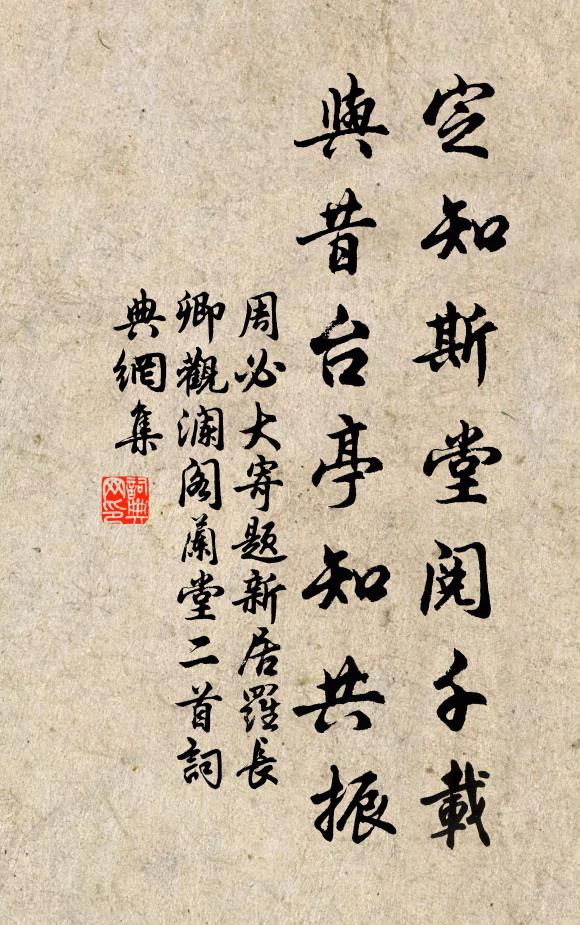 定知斯堂閱千載
與昔台亭知共振
周必大寄題新居羅長
卿觀瀾閣蘭堂二首詞
典網集
詞典網印